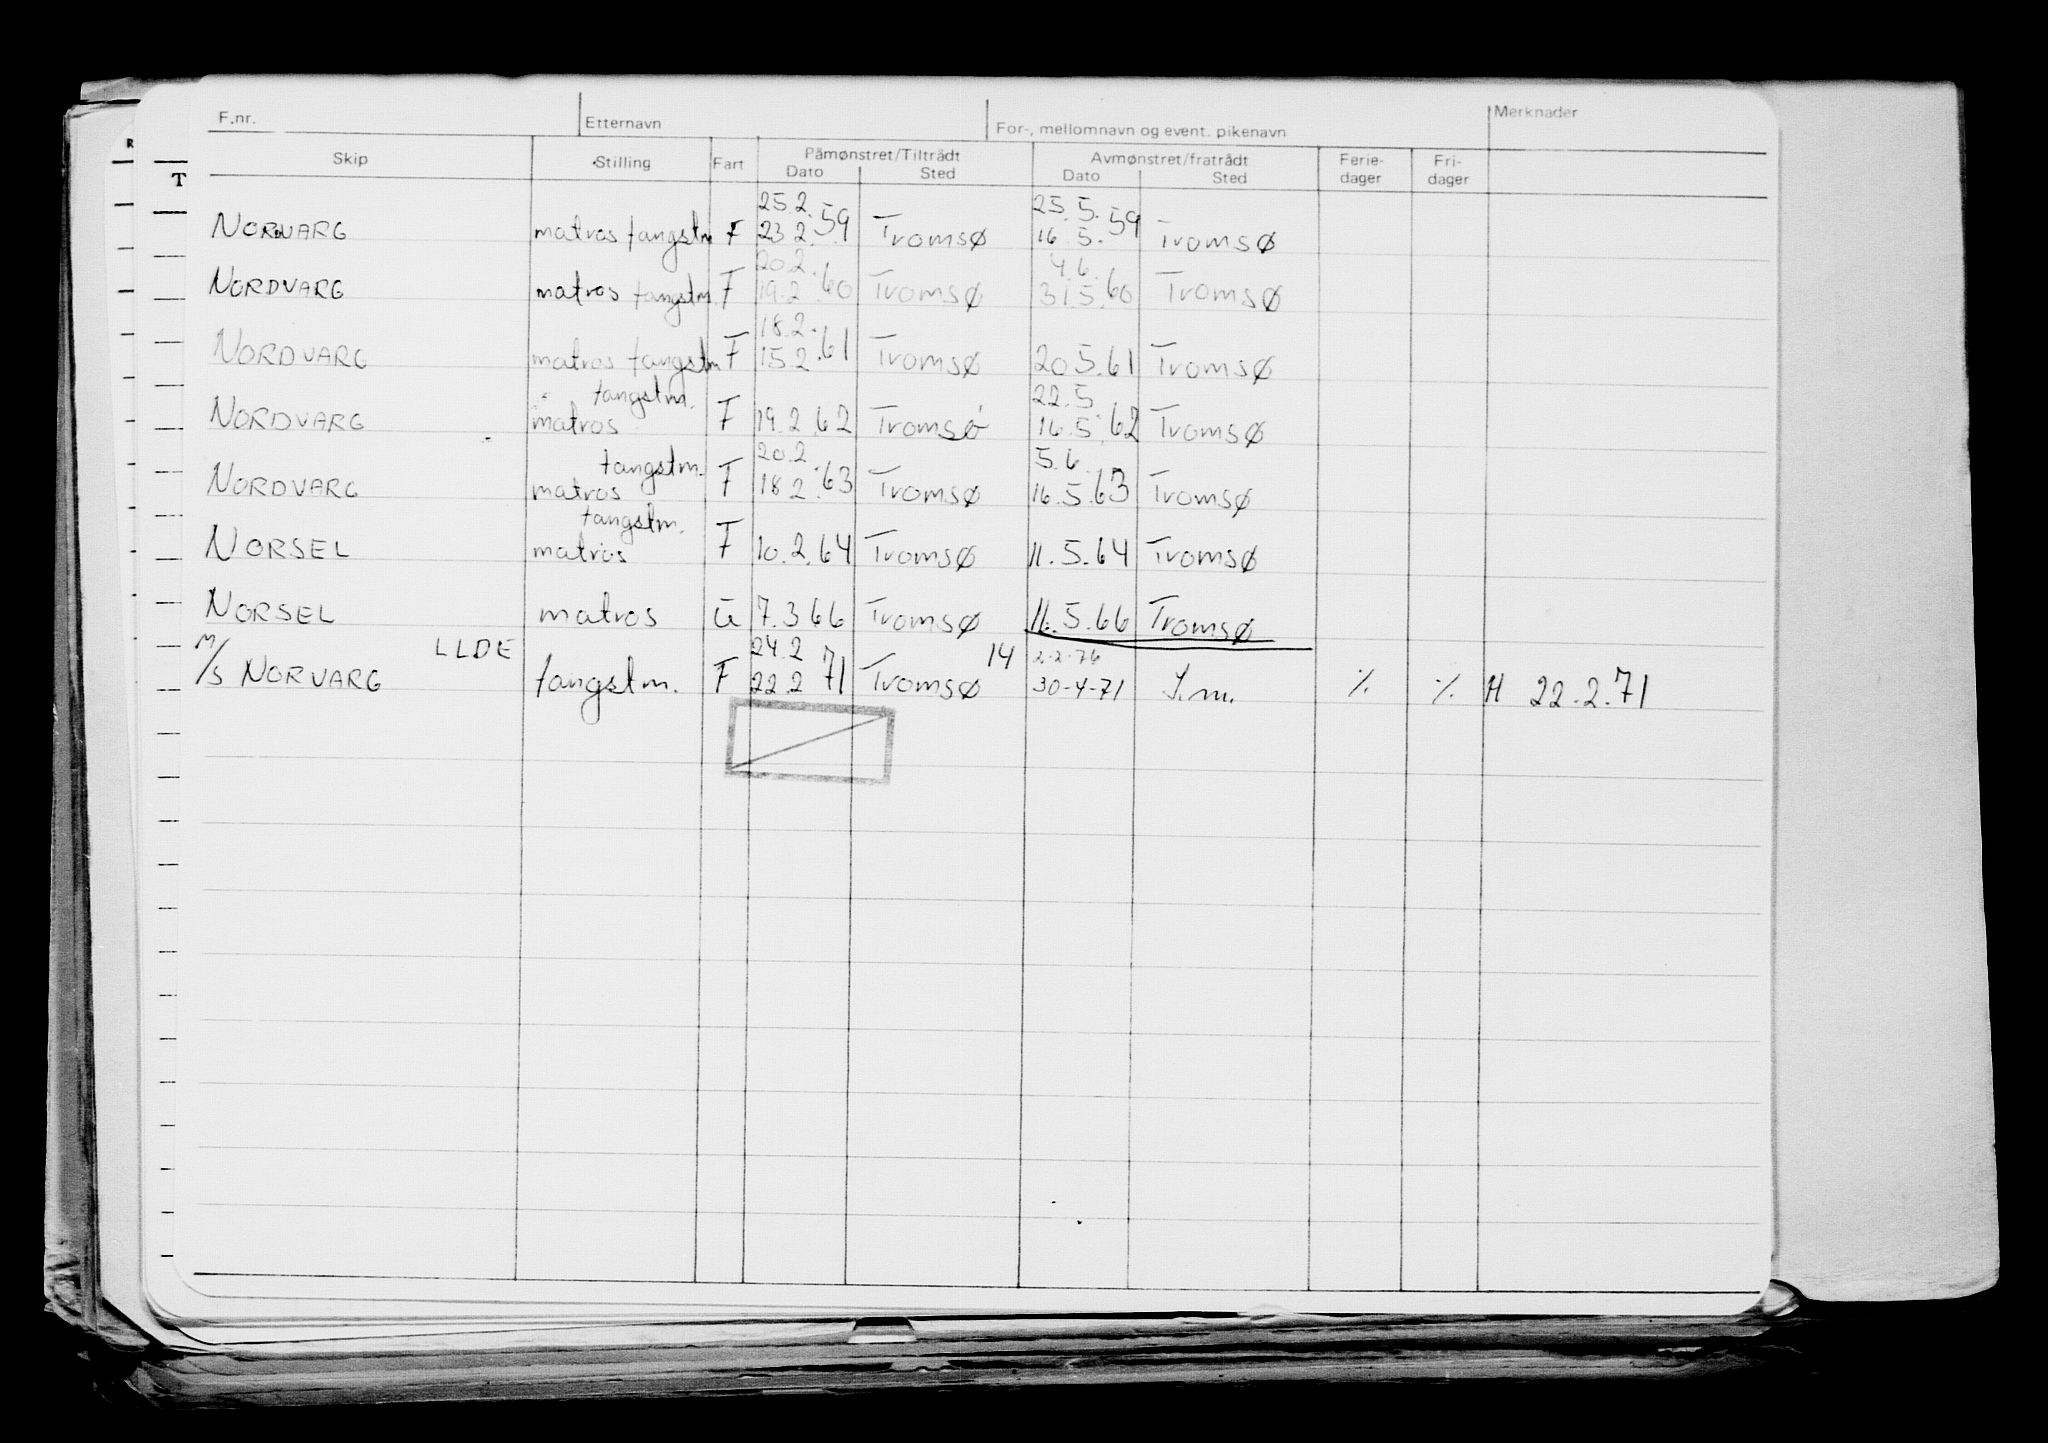 F.nr. Etternavn For-, mellomnavn og event. pikenavn Merknader
Skip Stilling Fart Påmønstret/Tiltrådt Avmønstret/fratrådt Ferie- Fri-
Dato Sted Dato Sted dager dager
25.2. 25.5.
NORDVARG matros fangstm F 23 2. 59 Tromsø 16.5. 59 Tromsø
20.2. 4.6.
NORDVARG matros fangstm. F 19.2 .60 Tromsø 31.5.60 Tromsø
18.2.
NORDVARG matros fangstm F 15.2 .61 Tromsø 20.5.61 Tromsø
fangstm. 22.5
NORDVARG matros F 19.2.62 Tromsø 16.5.62 Tromsø
fangstm. 20.2. 5.6.
NORDVARG matros F 18.2.63 Tromsø 16.5.63 Tromsø
fangstm.
NORSEL matros F 10.2.64 Tromsø 11.5.64 Tromsø
NORSEL matros U 7.3 66 Tromsø 11.5.66 Tromsø
M/S LLDE 24.2 14 2-2-76
NORVARG fangstm. F 22.2 71 Tromsø 30-4-71 S.m. % % H 22.2.71
R
T